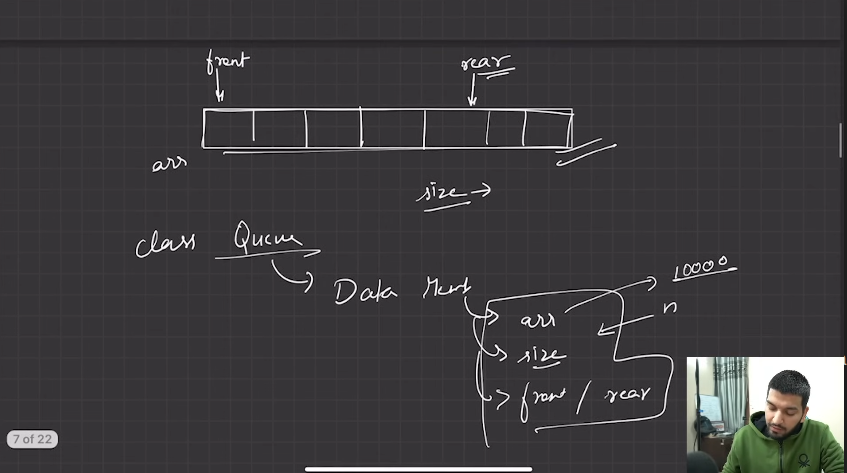 front rear
arr
size →
class Queue
Data Memb
10000
arr n
size
front / rear
7 of 22